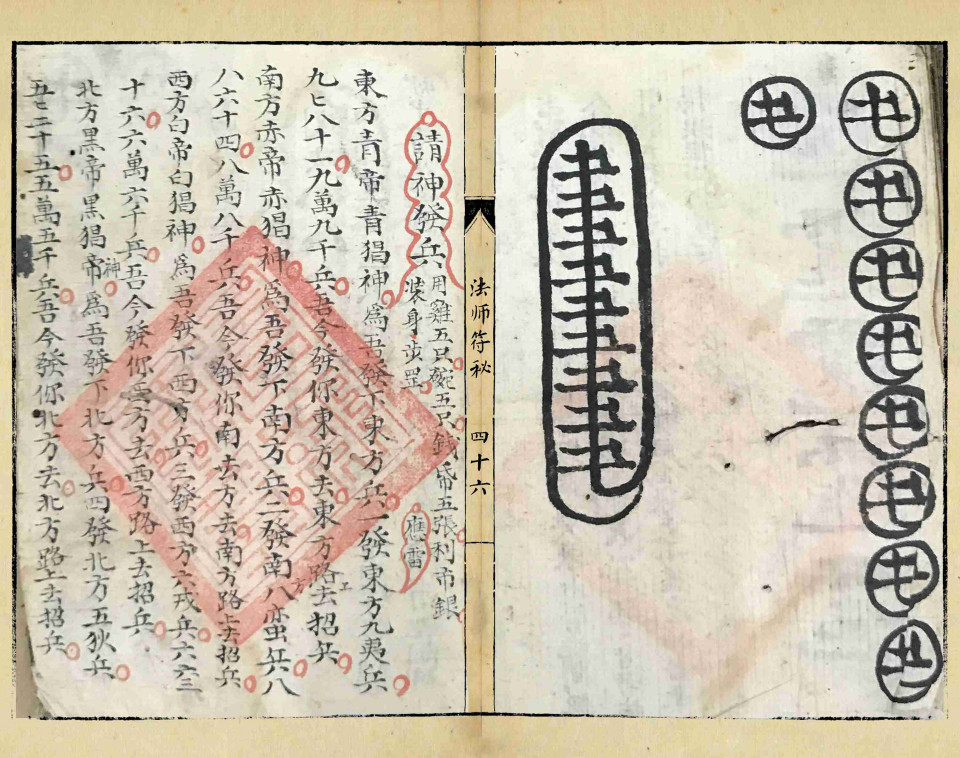 請神發兵
用雞五只碗五只錢帋五張利市銀
裝身步罡
應雷
東方青帝青猖神為吾發下東方兵一發東方九夷兵
九七八十一九萬九千兵吾今發你東方去東方路上去招兵
南方赤帝赤猖神為吾發下南方兵二發南方八蛮兵八
八六十四八萬八千兵吾今發你南去方去南方路上去招兵
西方白帝白猖神為吾發下西方兵三發西方六戎兵六六三
十六六萬六千兵吾今發你西方去西方路上去招兵
北方黑帝黑猖神帝為吾發下北方兵四發北方五狄兵
五七二十五五萬五千兵吾今發你北方去北方路上去招兵
法师符秘
四十六